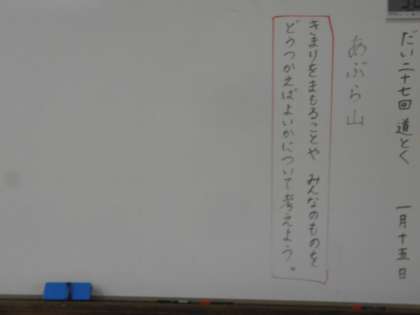 だい二十七回 道とく 一月十五日
あぶら山
きまりをまもることや みんなのものを
どうつかえばよいかについて考えよう。